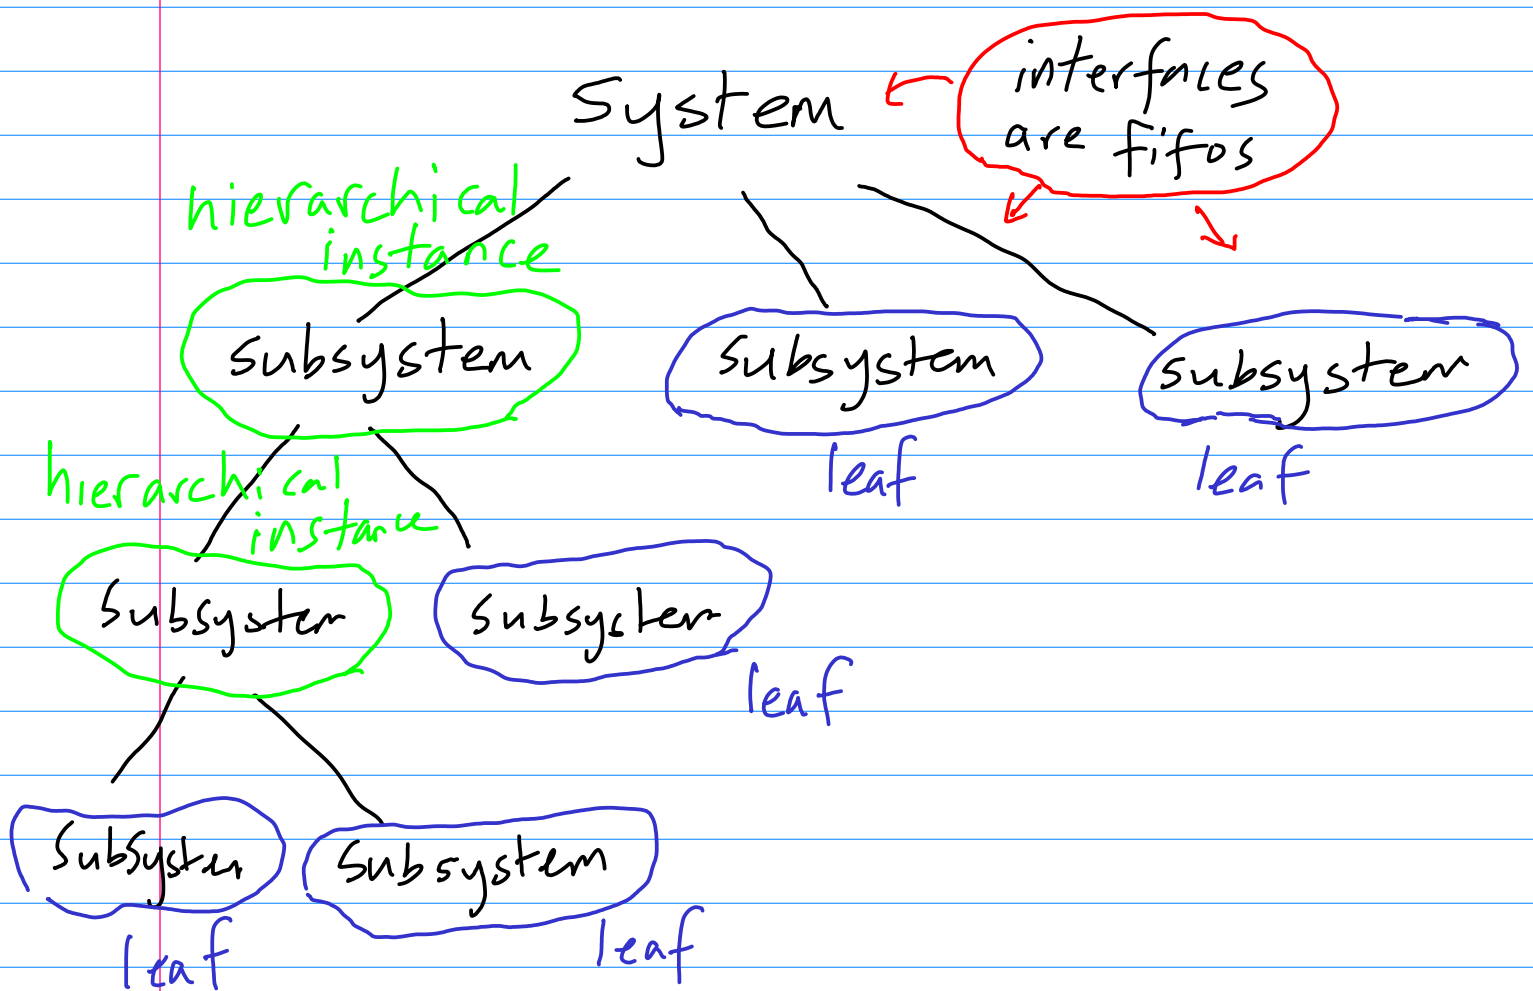 interfaces
System
are fifos
hierarchical
instance
subsystem
subsystem
subsystem
leaf
leaf
hierarchical
instance
subsystem
subsystem
leaf
subsystem
subsystem
leaf
leaf